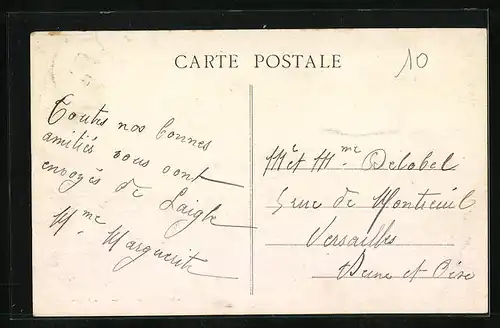 CARTE POSTALE
10
Toutes nos bonnes
amitiés vous sont
envoyés de Laigle
Mme Marguerite
Mr et Mme Delobel
5 rue de Montreuil
Versailles
Seine et Oise